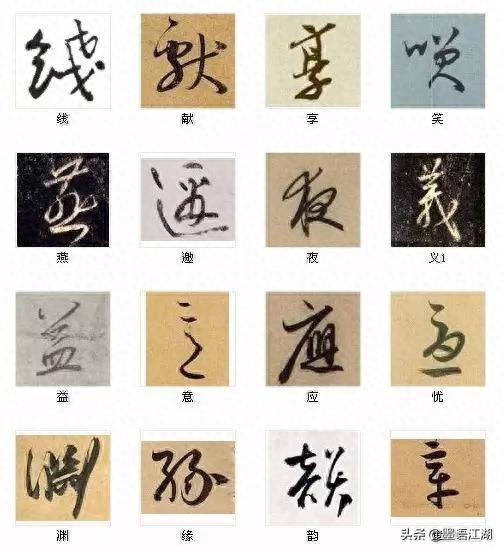 线 献 享 笑
燕 邀 夜 义1
益 意 应 忧
渊 缘 韵
头条 @墨语江湖